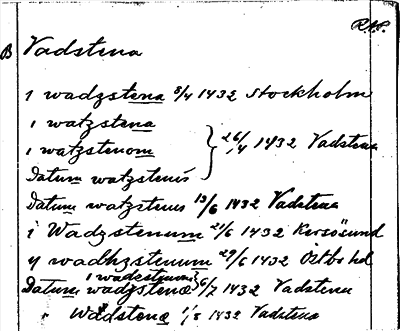 R.A.P.
B Vadstena
i wadzstena 8/4 1432 Stockholm
i watzstena
i watzstenom } 26/4 1432 Vadstena
Datum watzstenis
Datum watzstenis 13/6 1432 Vadstena
i Wadzstenum 21/6 1432 Korsösund
y wadhzstenum 29/6 1432 Östbo hd
i wadestenom
Datum wadzstenæ } 6/7 1432 Vadstena
" Wadstenæ 1/8 1432 Vadstena